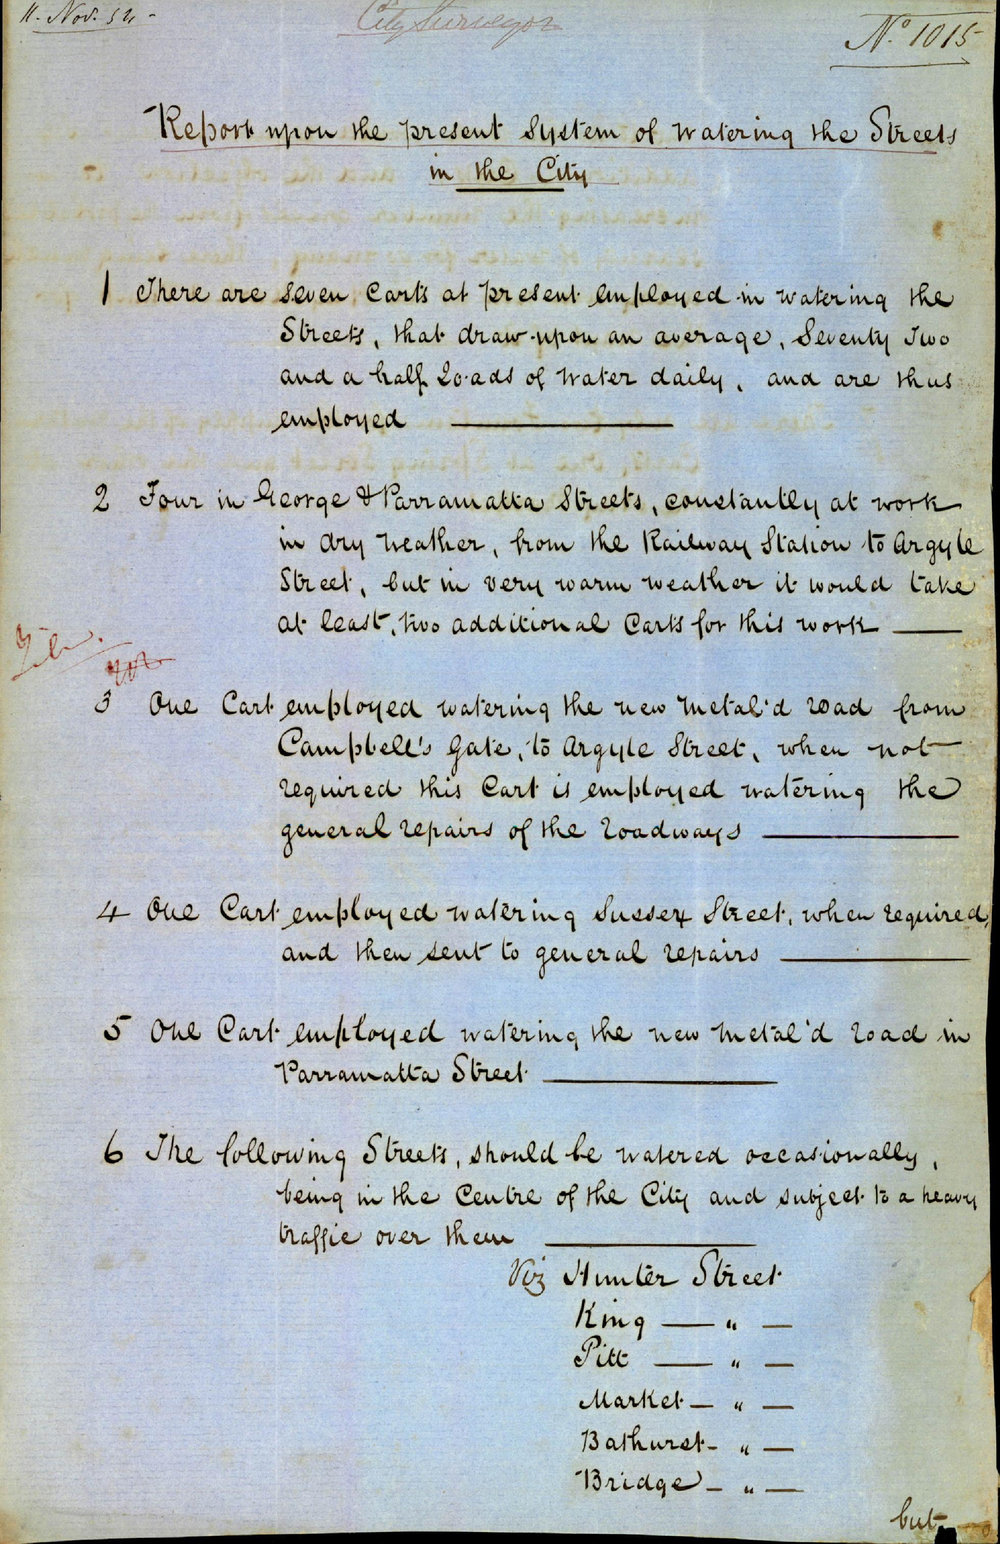 11. Nov. 54 -
City Surveyor
No. 1015
Report upon the present System of Watering the Streets
in the City
1 There are seven Carts at present employed in watering the
Streets, that draw upon an average, Seventy Two
and a half Loads of Water daily, and are thus
employed
2 Four in George & Parramatta Streets, constantly at work
in dry weather, from the Railway Station to Argyle
Street, but in very warm weather it would take
at least, two additional Carts for this work
3 One Cart employed watering the new Metal'd Road from
Campbell's Gate, to Argyle Street, when not
required this Cart is employed watering the
general repairs of the Roadways
4 One Cart employed watering Sussex Street, when required,
and then sent to general repairs
5 One Cart employed watering the new Metal'd Road in
Parramatta Street
6 The following Streets, should be watered occasionally,
being in the Centre of the City and subject to a heavy
traffic over them
Viz Hunter Street
King — " —
Pitt — " —
Market — " —
Bathurst - " —
Bridge — " —
but